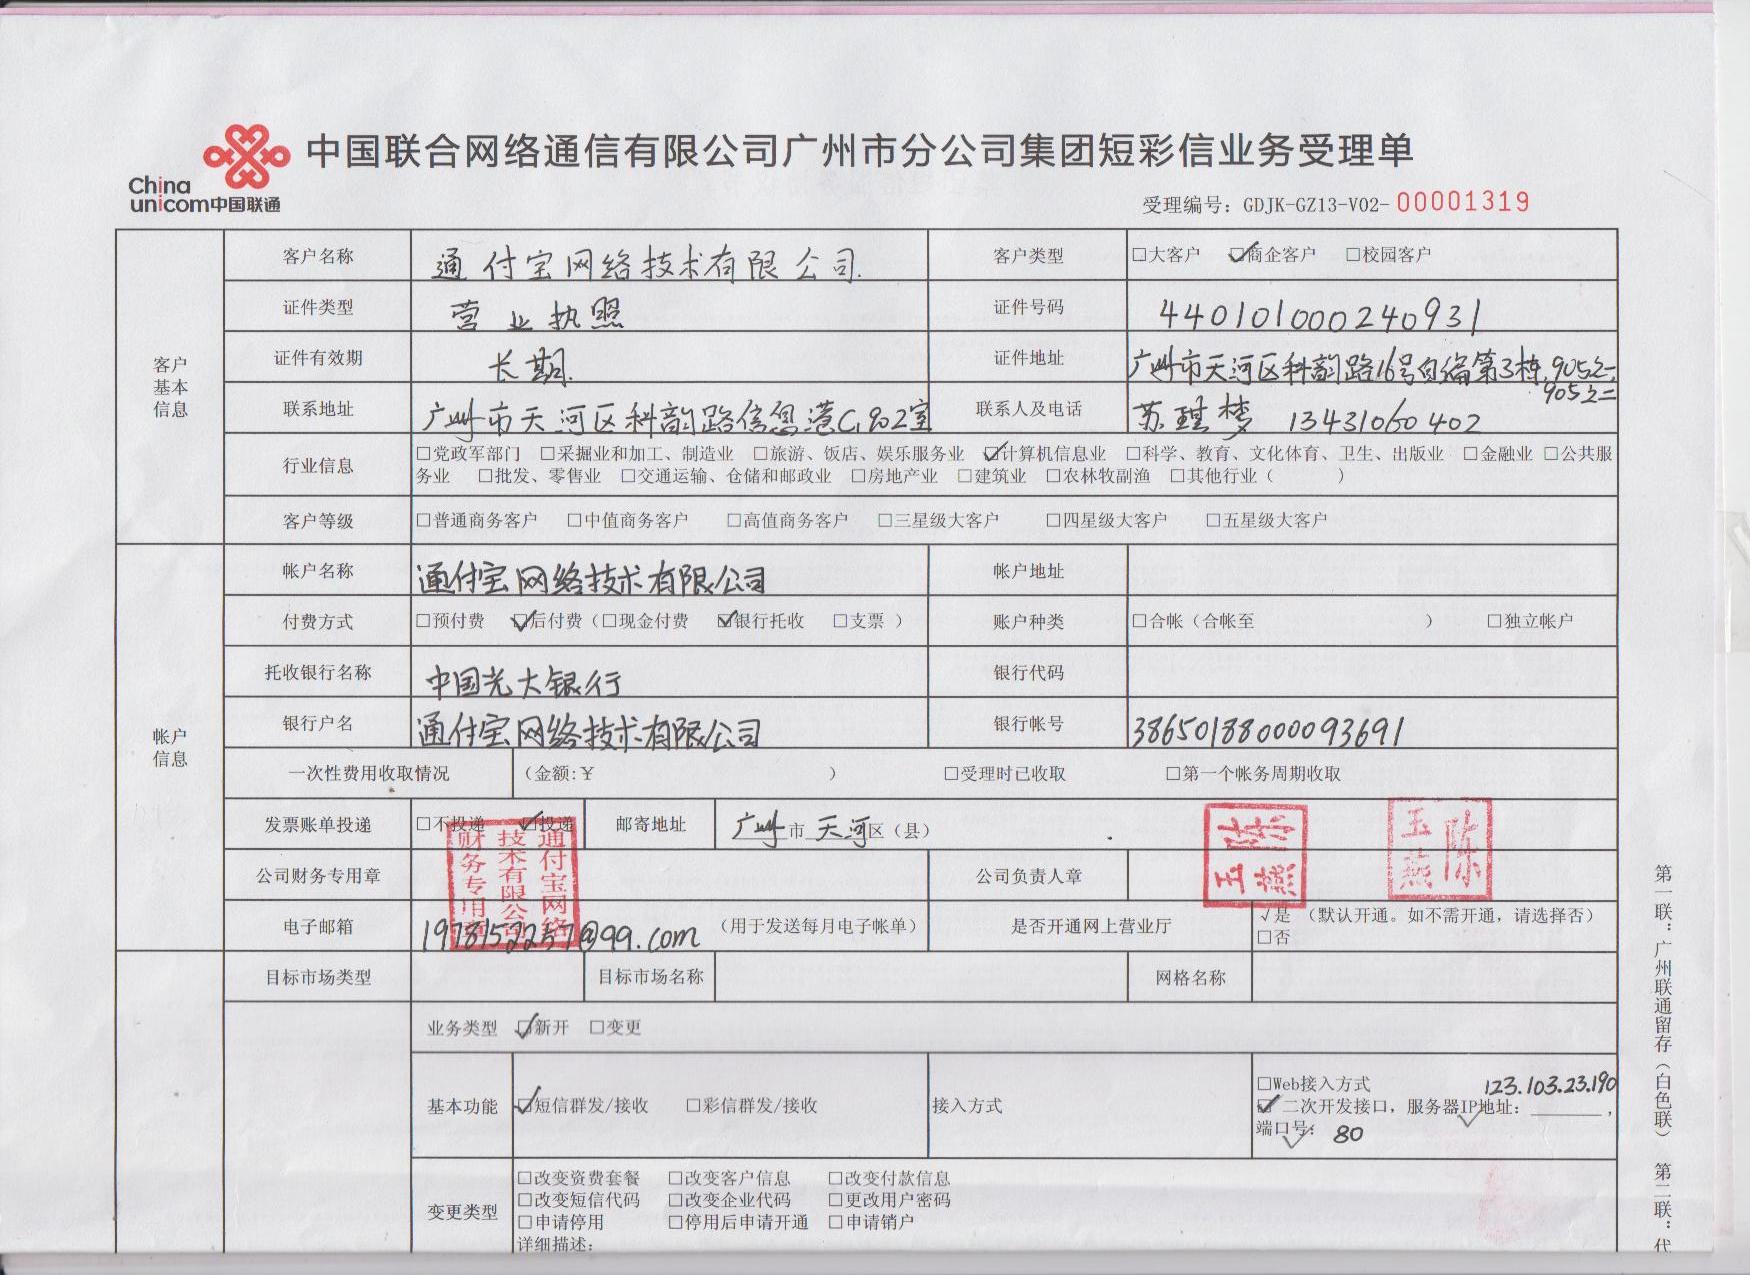 中国联合网络通信有限公司广州市分公司集团短彩信业务受理单
China
unicom中国联通
受理编号：GDJK-GZ13-V02-00001319
客户基本信息
客户名称 通付宝网络技术有限公司. 客户类型 □大客户 ☑商企客户 □校园客户
证件类型 营业执照 证件号码 440101000240931
证件有效期 长期. 证件地址 广州市天河区科韵路16号自编第3栋,905之一,
905之二
联系地址 广州市天河区科韵路信息港C,902室 联系人及电话 苏理梦 13431060402
行业信息 □党政军部门 □采掘业和加工、制造业 □旅游、饭店、娱乐服务业 ☑计算机信息业 □科学、教育、文化体育、卫生、出版业 □金融业 □公共服
务业 □批发、零售业 □交通运输、仓储和邮政业 □房地产业 □建筑业 □农林牧副渔 □其他行业（ ）
客户等级 □普通商务客户 □中值商务客户 □高值商务客户 □三星级大客户 □四星级大客户 □五星级大客户
帐户信息
帐户名称 通付宝网络技术有限公司 帐户地址
付费方式 □预付费 ☑后付费（□现金付费 ☑银行托收 □支票 ） 账户种类 □合帐（合帐至 ） □独立帐户
托收银行名称 中国光大银行 银行代码
银行户名 通付宝网络技术有限公司 银行帐号 38650188000093691
一次性费用收取情况 （金额:￥ ） □受理时已收取 □第一个帐务周期收取
发票账单投递 □不投递 ☑投递 邮寄地址 广州市天河区（县）
公司财务专用章 通付宝网络技术有限公司财务专用章 公司负责人章 陈玉燕 陈玉燕
电子邮箱 1978152257@qq.com （用于发送每月电子帐单） 是否开通网上营业厅 √是 （默认开通。如不需开通，请选择否）
□否
目标市场类型 目标市场名称 网格名称
业务类型 ☑新开 □变更
基本功能 ☑短信群发/接收 □彩信群发/接收 接入方式 □Web接入方式 123.103.23.190
☑ 二次开发接口，服务器IP地址：________，
端口号： 80
变更类型 □改变资费套餐 □改变客户信息 □改变付款信息
□改变短信代码 □改变企业代码 □更改用户密码
□申请停用 □停用后申请开通 □申请销户
详细描述：
第一联：广州联通留存（白色联） 第二联：代